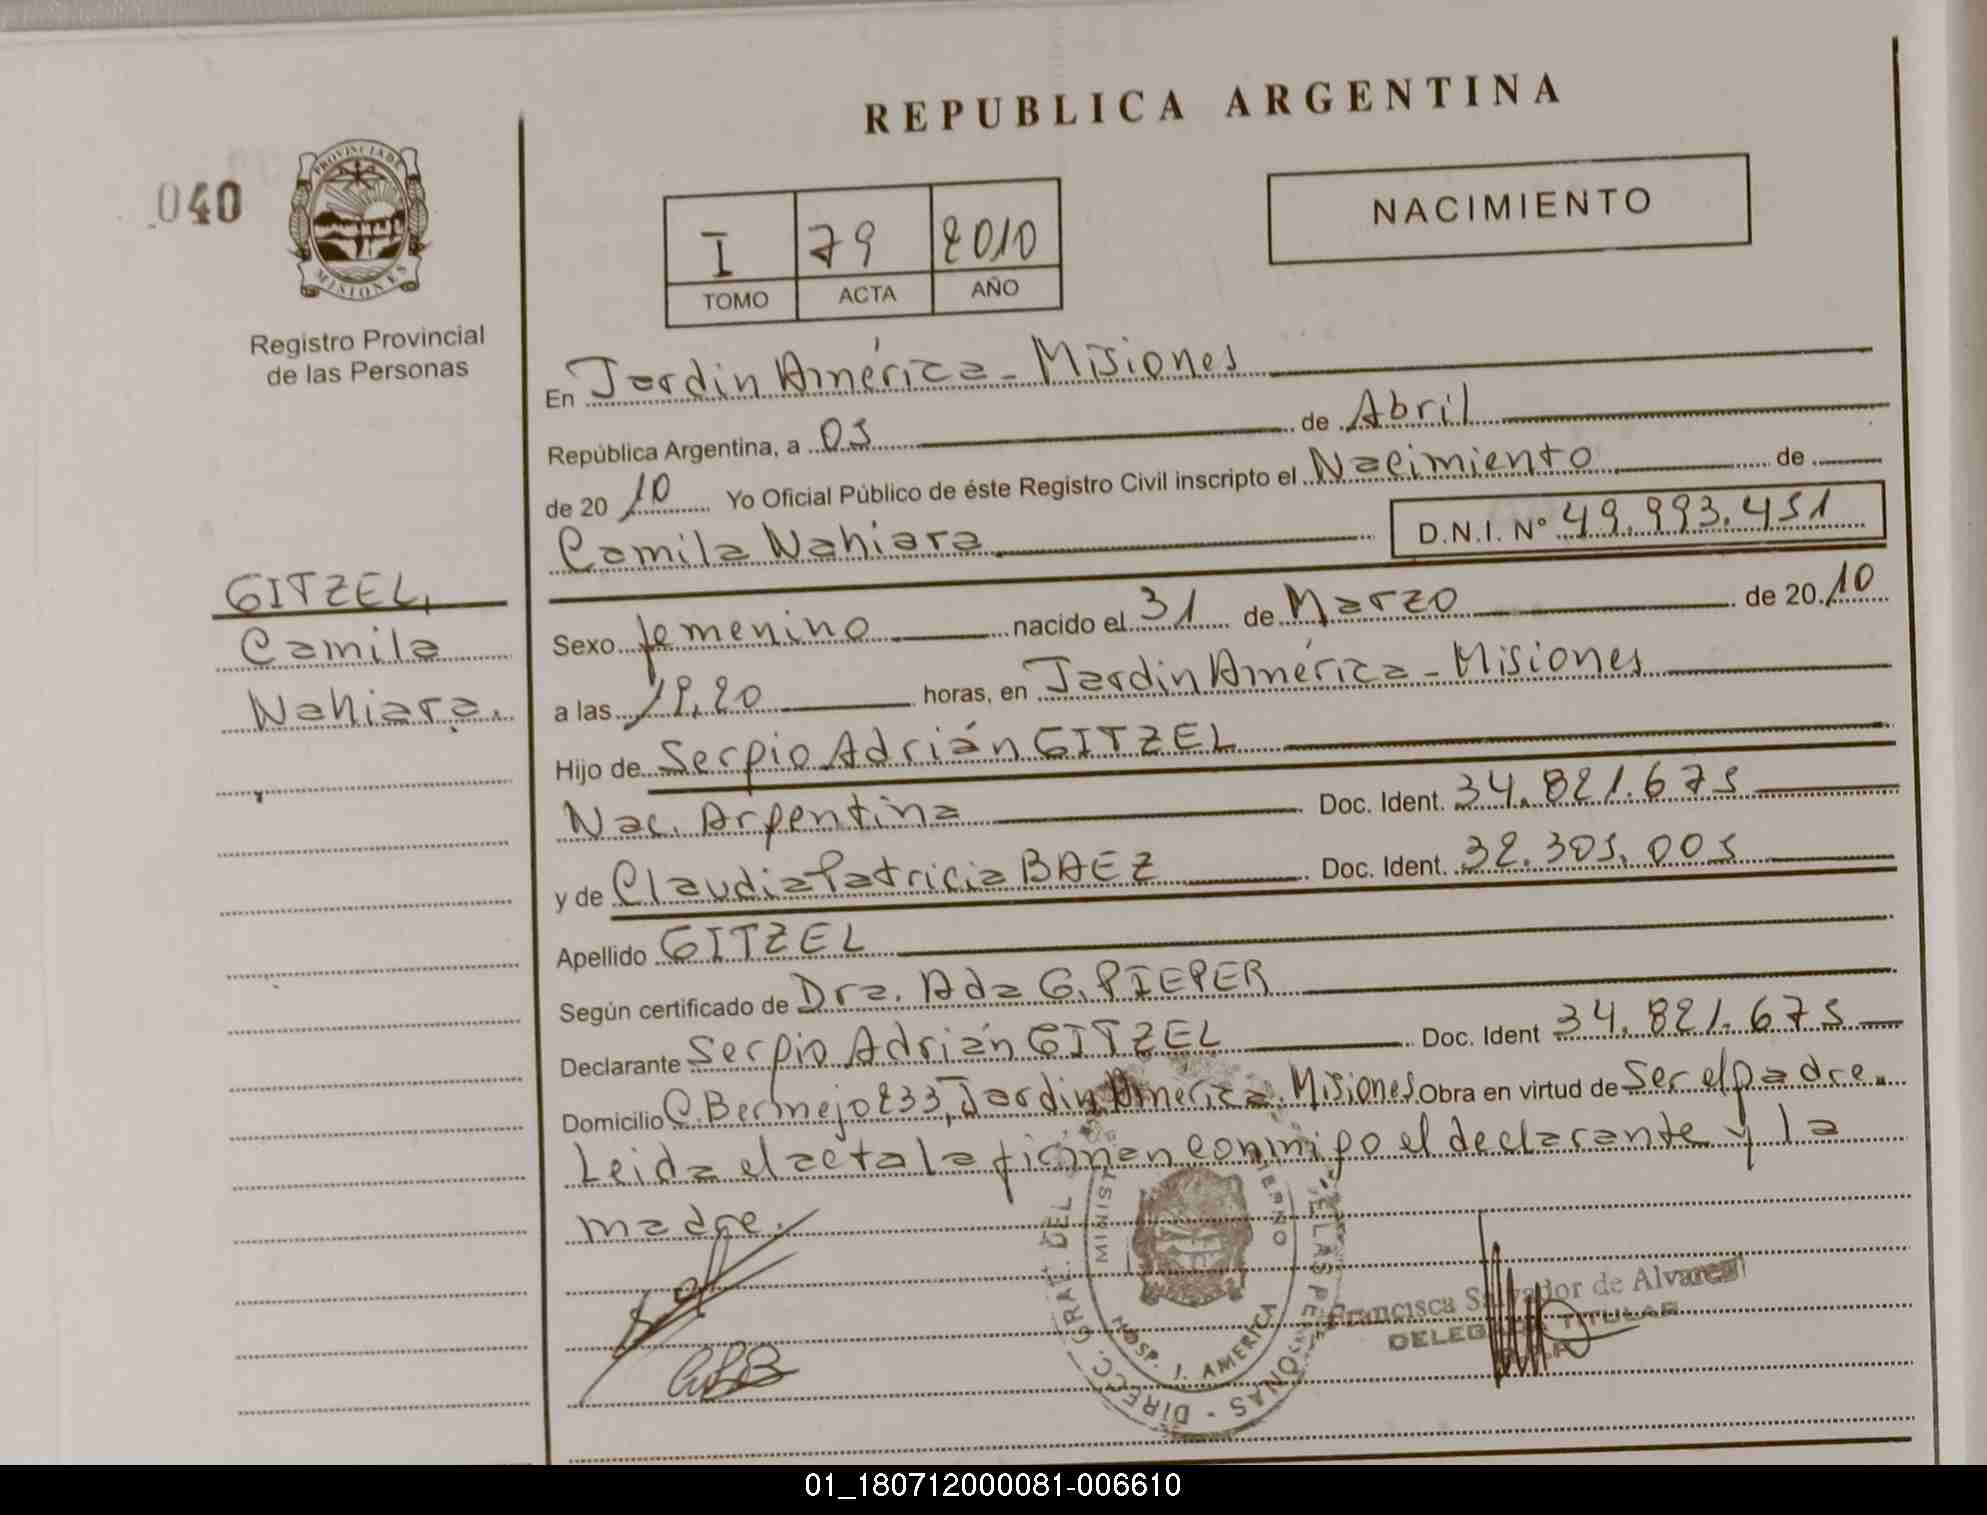 REPUBLICA ARGENTINA
040
PROVINCIA DE
MISIONES
Registro Provincial
de las Personas
I 79 2010
TOMO ACTA AÑO
NACIMIENTO
En Jardin América - Misiones
República Argentina, a 05 de Abril
de 20 10 Yo Oficial Público de éste Registro Civil inscripto el Nacimiento de
Camila Nahiara D.N.I. Nº 49.993.451
GITZEL,
Camila
Nahiara.
Sexo femenino nacido el 31 de Marzo de 20 10
a las 19,20 horas, en Jardin América - Misiones
Hijo de Sergio Adrián GITZEL
Nac. Argentina Doc. Ident. 34.821.675
y de Claudia Patricia BAEZ Doc. Ident. 32.305.005
Apellido GITZEL
Según certificado de Dra. Ada G. PIEPER
Declarante Sergio Adrián GITZEL Doc. Ident 34.821.675
Domicilio C. Bermejo 233, Jardin America. Misiones Obra en virtud de Ser el padre.
Leida el acta la firman conmigo el declarante y la
madre.
DIRECC. GRAL. DEL
HOSP. J. AMERICA
Francisca Salvador de Alvarez
DELEGADA TITULAR
01_180712000081-006610